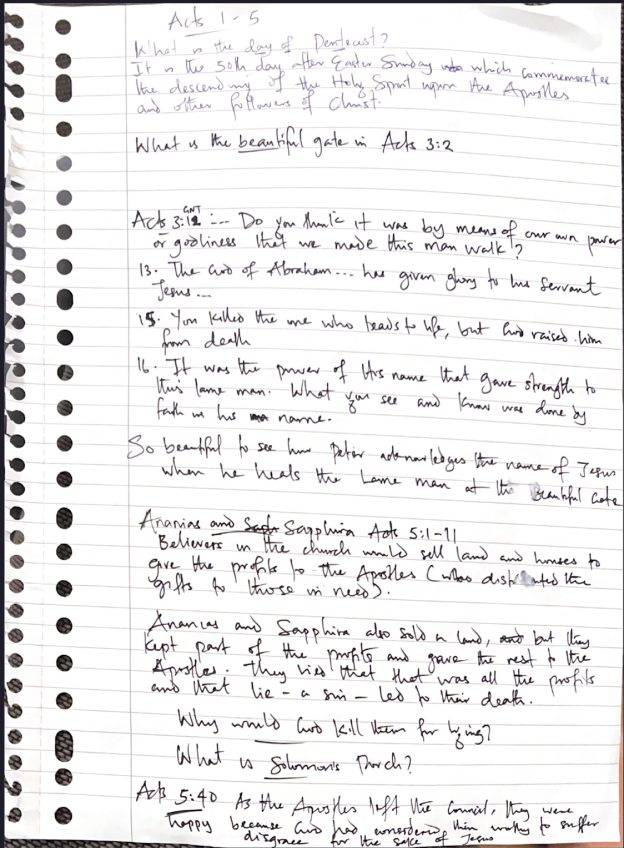 Acts 1-5
What is the day of Pentecost?
It is the 50th day after Easter Sunday which commemorates
the descending of the Holy Spirit upon the Apostles
and other followers of Christ.
What is the beautiful gate in Acts 3:2
GNT
Acts 3:12 :-- Do you think it was by means of our own power
or godliness that we made this man walk?
13. The God of Abraham... has given glory to his servant
Jesus...
15. You killed the one who leads to life, but God raised him
from death
16. It was the power of His name that gave strength to
this lame man. What you see and know was done by
faith in his name.
So beautiful to see how Peter acknowledges the name of Jesus
when he heals the lame man at the Beautiful Gate
Ananias and Sapphira Acts 5:1-11
Believers in the church would sell land and houses to
give the profits to the Apostles (who distributed the
gifts to those in need).
Ananias and Sapphira also sold a land, but they
kept part of the profits and gave the rest to the
Apostles. They lied that that was all the profits
and that lie - a sin - led to their death.
Why would God kill them for lying?
What is Solomon's Porch?
Acts 5:40 As the Apostles left the Council, they were
happy because God had considered them worthy to suffer
disgrace for the sake of Jesus